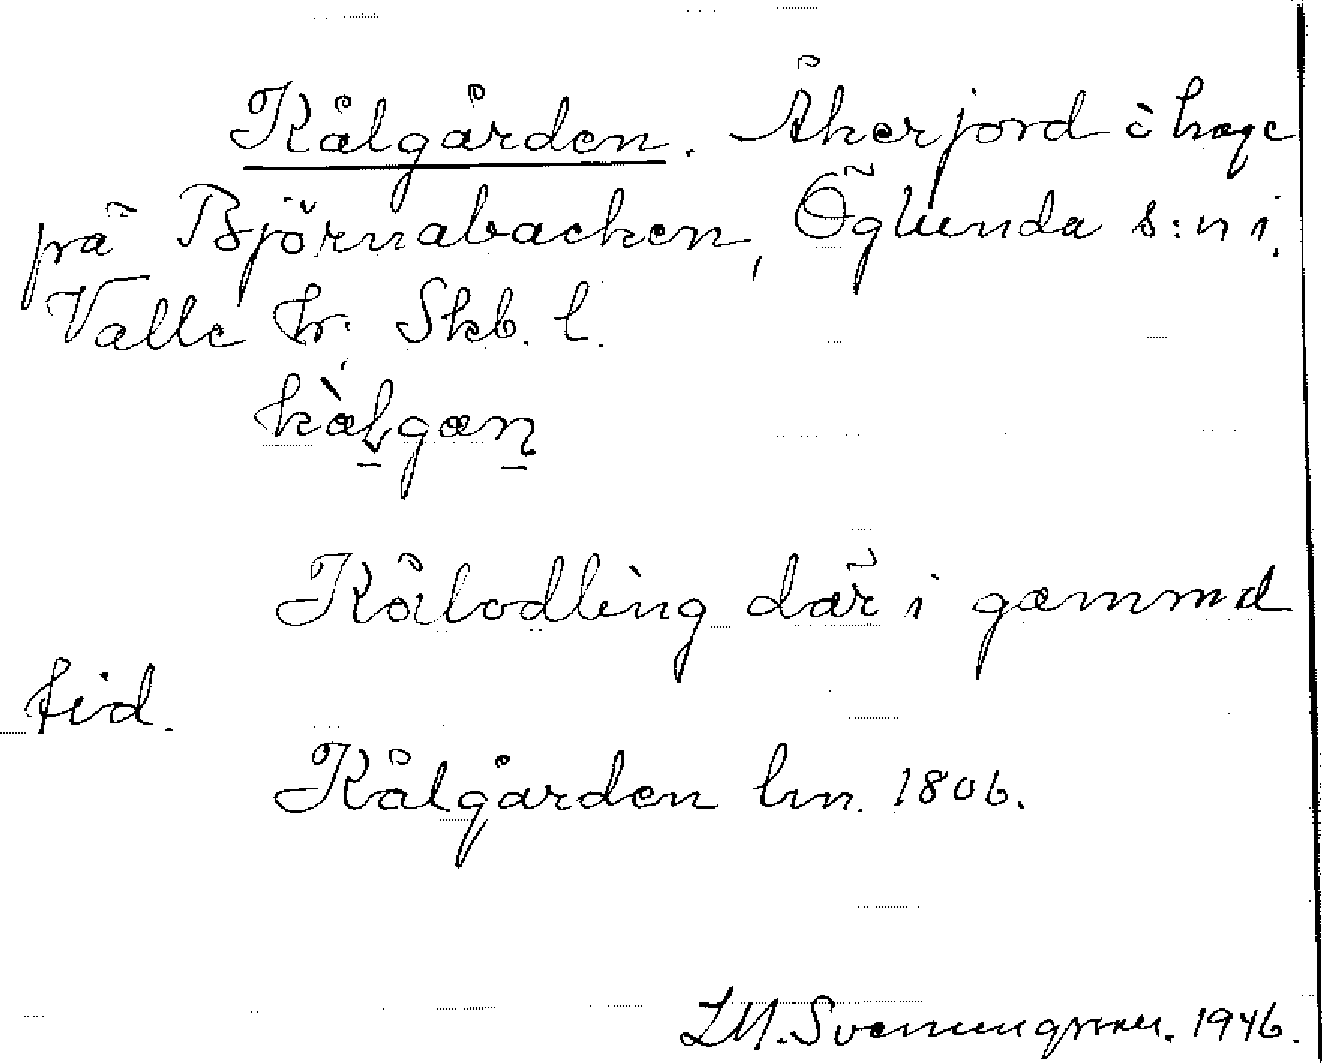 Kålgården. Åkerjord o hage
på Björnabacken, Öglunda s:n i.
Valle hr. Skb. l.
kålgan
Kålodling där i gammal
tid.
Kålgården lm. 1806.
L.M. Svenungsson. 1946.